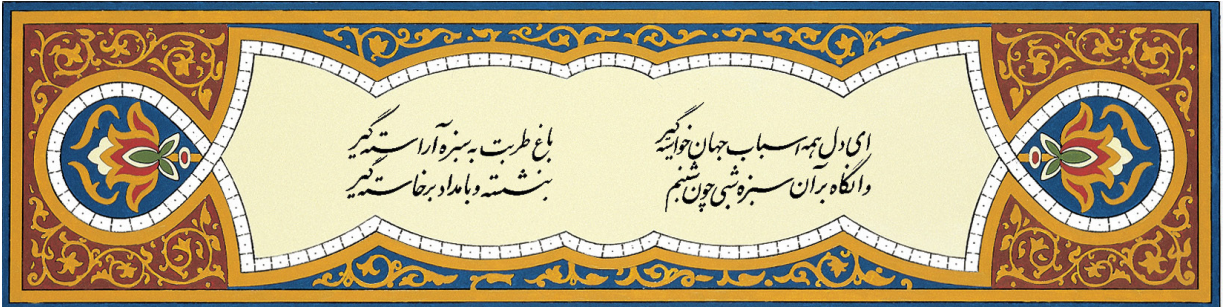 ای دل همه اسباب جهان خواسته گیر باغ طربت به سبزه آراسته گیر
وانگاه بر آن سبزه شبی چون شبنم بنشسته و بامداد برخاسته گیر